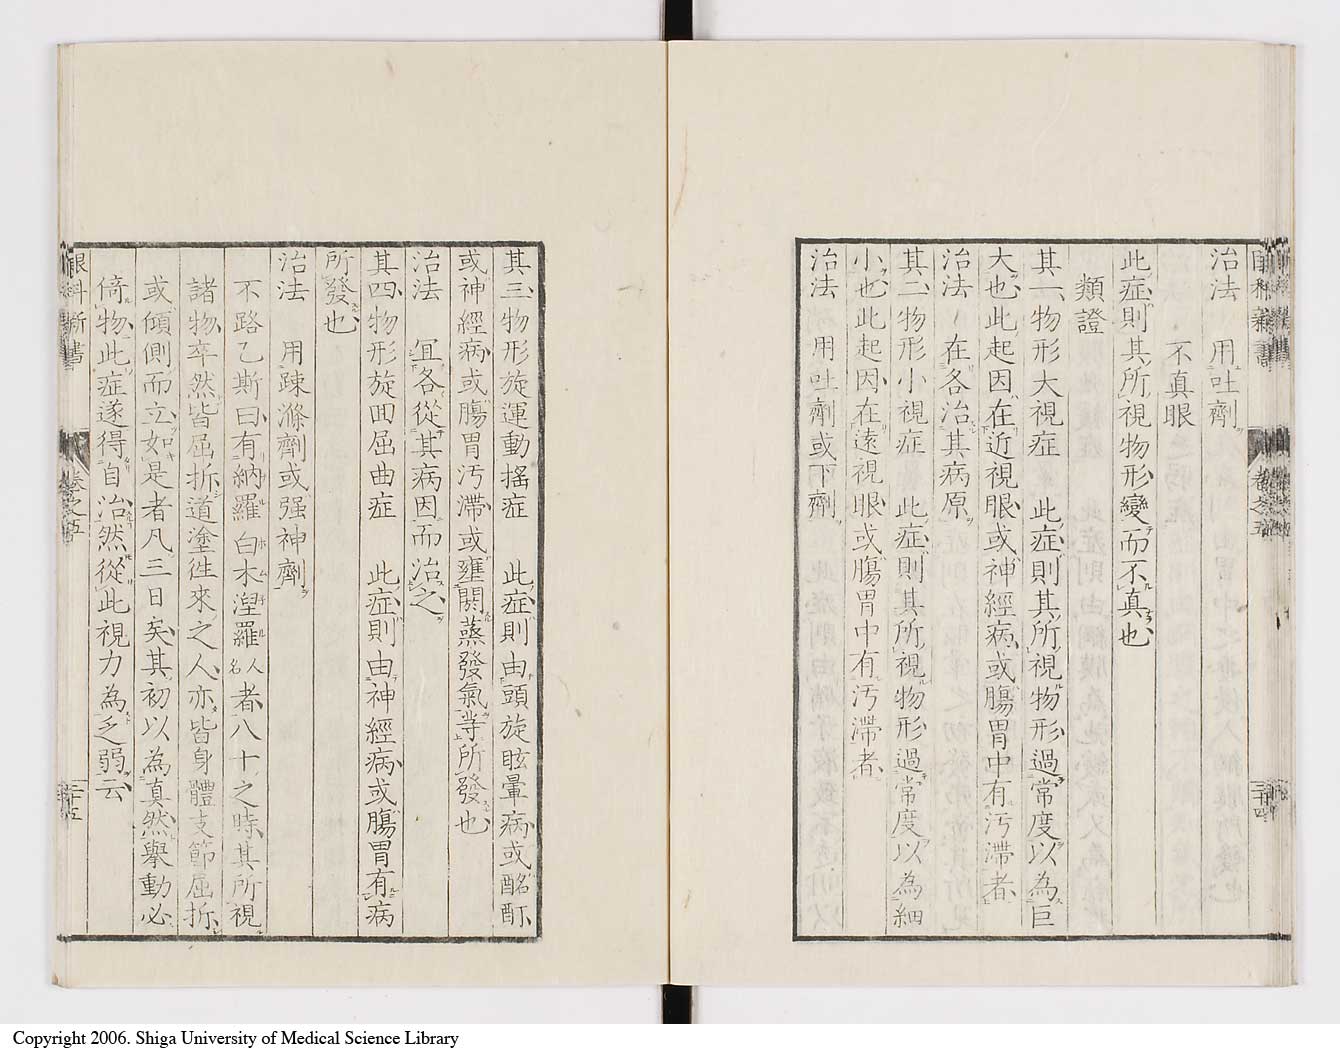 眼科新書 卷之五 二十四
治法 用吐劑
不真眼
此症則其所視物形變而不真也
類證
其一、物形大視症 此症則其所視物形過常度以為巨
大也此起因在近視眼或神經病或腸胃中有汚滯者
治法 在各治其病原
其二、物形小視症 此症則其所視物形過常度以為細
小也此起因在遠視眼或腸胃中有汚滯者
治法 用吐劑或下劑
其三、物形旋運動搖症 此症則由頭旋眩暈病或酩酊
或神經病或腸胃汚滯或壅閼蒸發氣等所發也
治法 宜各從其病因而治之
其四、物形旋回屈曲症 此症則由神經病或腸胃有病
所發也
治法 用疎滌劑或强神劑
不路乙斯曰有納羅白木涅羅人名者八十之時其所視
諸物卒然皆屈折道塗徃來之人亦皆身體支節屈折
或傾側而立如是者凡三日矣其初以為真然擧動必
倚物此症遂得自治然從此視力為乏弱云
眼科新書 卷之五 二十五
Copyright 2006. Shiga University of Medical Science Library